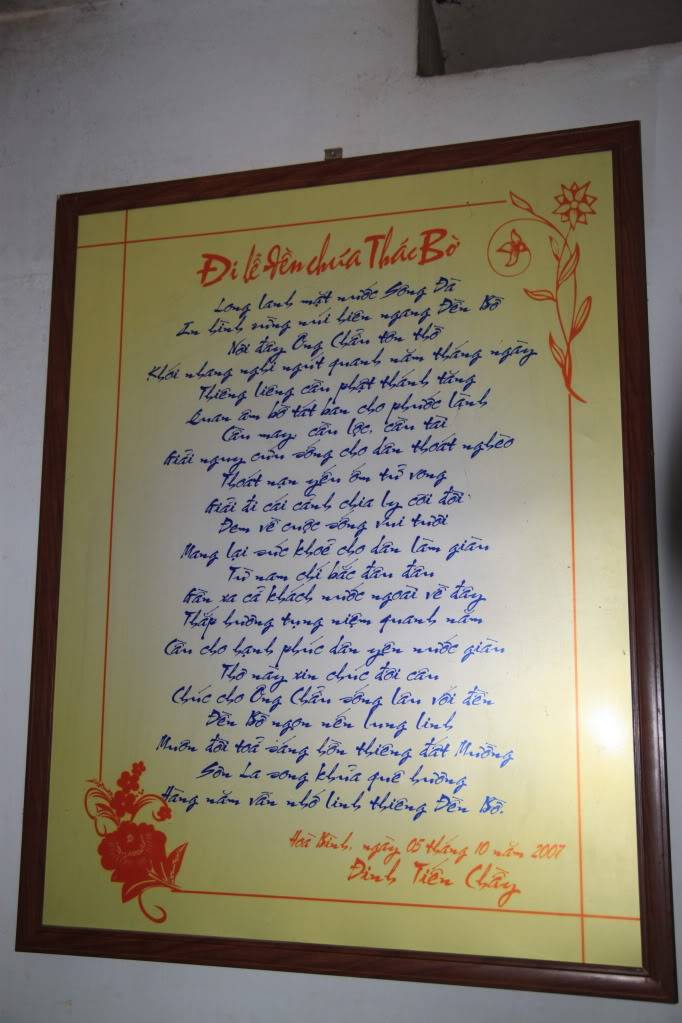 Đi lễ đền chúa Thác Bờ
Long lanh mặt nước Sông Đà
In hình vừng núi hiên ngang Đền Bờ
Nơi đây Ông Chẩu tôn thờ
Khói nhang nghi ngút quanh năm tháng ngày
Thiêng liêng cầu phật thánh tăng
Quan âm bồ tát ban cho phước lành
Cầu may, cầu lộc, cầu tài
Giải nguy cứu sống cho dân thoát nghèo
Thoát nạn yếu ốm tử vong
Giải đi cái cảnh chia ly cõi đời
Đem về cuộc sống vui tươi
Mang lại sức khoẻ cho dân làm giàu
Từ nam chí bắc đâu đâu
Gần xa cả khách nước ngoài về đây
Thắp hương tụng niệm quanh năm
Cầu cho hạnh phúc dân yên nước giàu
Thơ này xin chúc đôi câu
Chúc cho Ông Chẩu sống lâu với đền
Đền Bờ ngọn nến lung linh
Muôn đời toả sáng hồn thiêng đất Mường
Sơn La song khứa quê hương
Hàng năm vẫn nhớ linh thiêng Đền Bờ.
Hoà Bình, ngày 05 tháng 10 năm 2007
Đinh Tiến Chầy